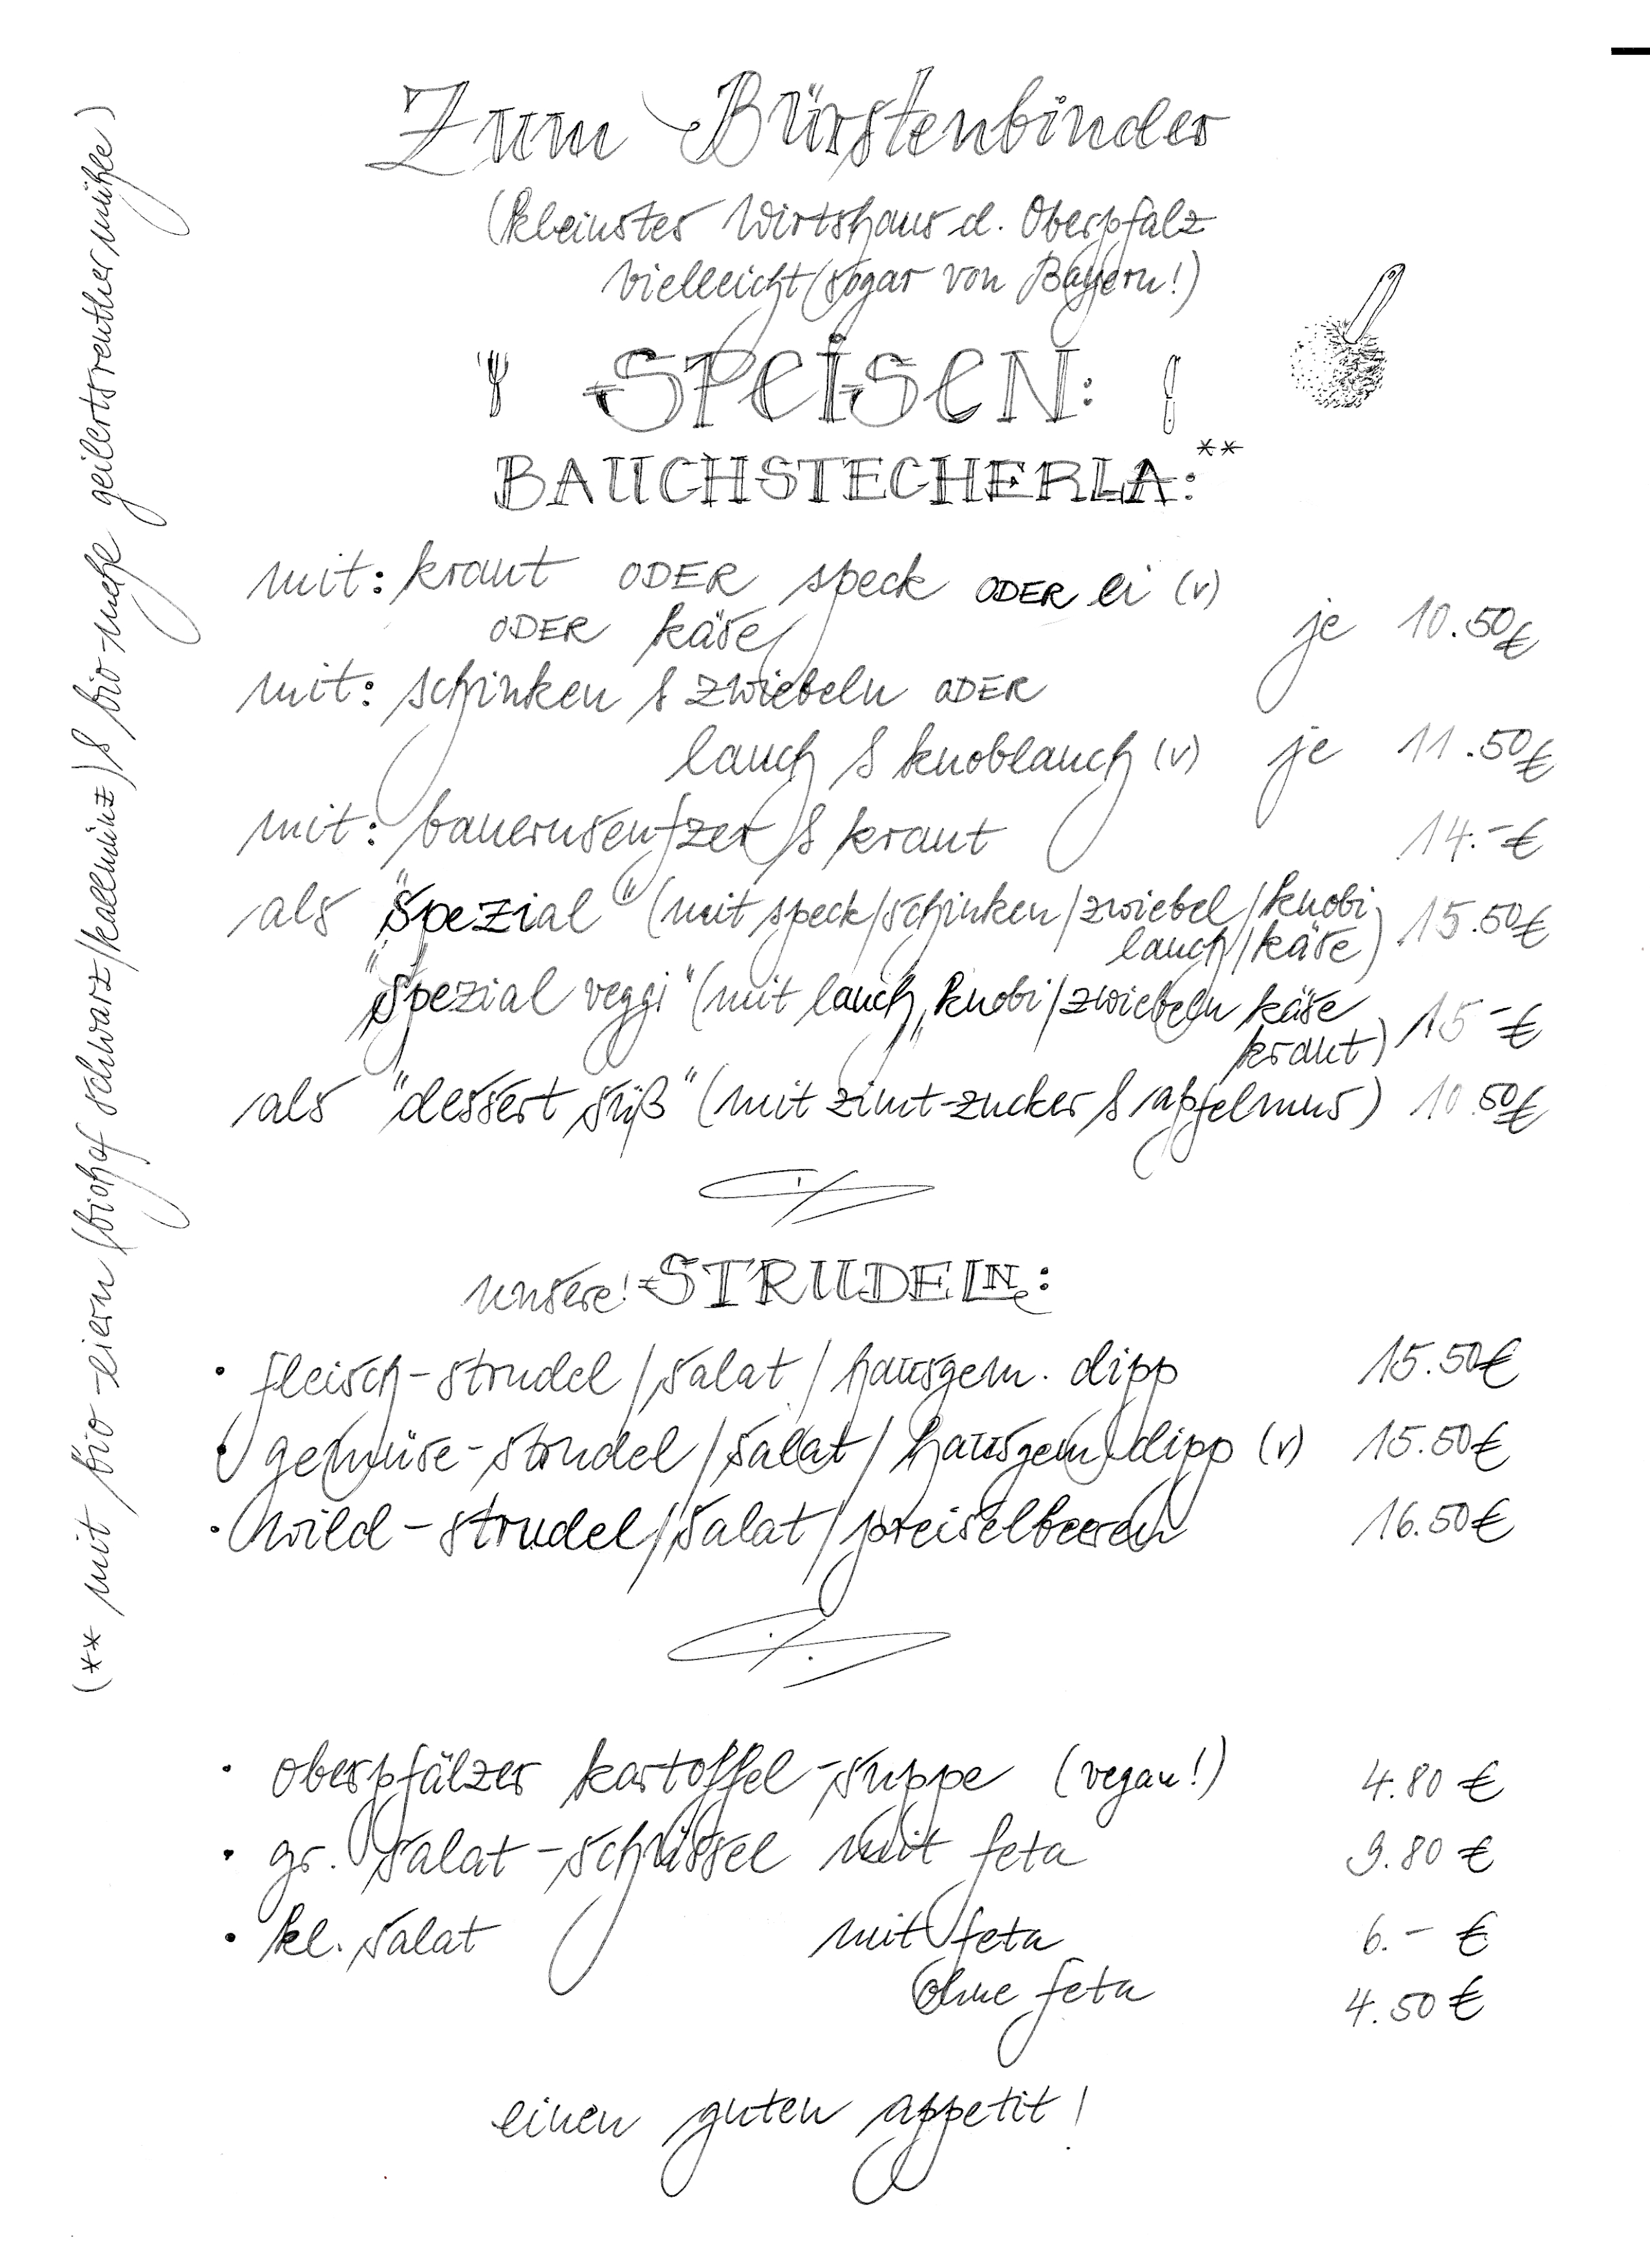 Zum Bürstenbinder
(kleinstes Wirtshaus d. Oberpfalz
vielleicht sogar von Bayern!)
SPEISEN:
BAUCHSTECHERLA:**
mit: kraut ODER speck ODER ei (v)
ODER käse je 10.50€
mit: schinken & zwiebeln ODER
lauch & knoblauch (v) je 11.50€
mit: bauernseufzer & kraut 14.-€
als "spezial" (mit speck/schinken/zwiebel/knobi
lauch/käse) 15.50€
"spezial veggi" (mit lauch, knobi/zwiebeln käse
kraut) 15-€
als "dessert süß" (mit zimt-zucker & apfelmus) 10.50€
unsere! STRUDELN:
• fleisch-strudel/salat/hausgem. dipp 15.50€
• gemüse-strudel/salat/hausgem. dipp (v) 15.50€
• wild-strudel/salat/preiselbeeren 16.50€
• oberpfälzer kartoffel-suppe (vegan!) 4.80 €
• gr. salat-schüssel mit feta 9.80 €
• kl. salat mit feta 6.- €
ohne feta 4.50 €
einen guten appetit!
(** mit bio-eiern (biohof schwarz/kallmünz) & bio-mehl geilertsreuthermühle)